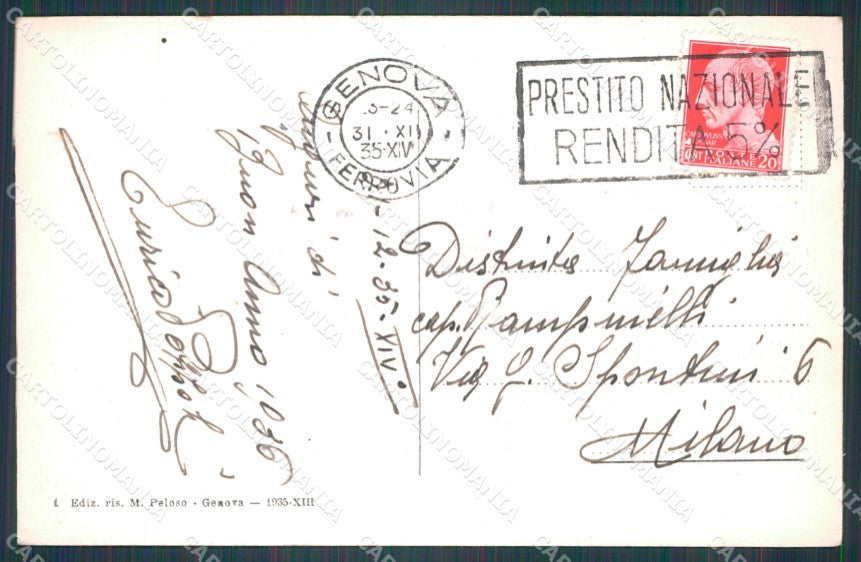 GENOVA
31 · XII
35·XIV
FERROVIA
PRESTITO NAZIONALE
RENDITA 5%
POSTE
ITALIANE
20
Auguri di
buon Anno 1936
-12-35-XIV°
Distinta Famiglia
cap. Rampinelli
Via G. Spontini 6
Milano
1 Ediz. ris. M. Peloso - Genova — 1935-XIII
CARTOLINOMANIA